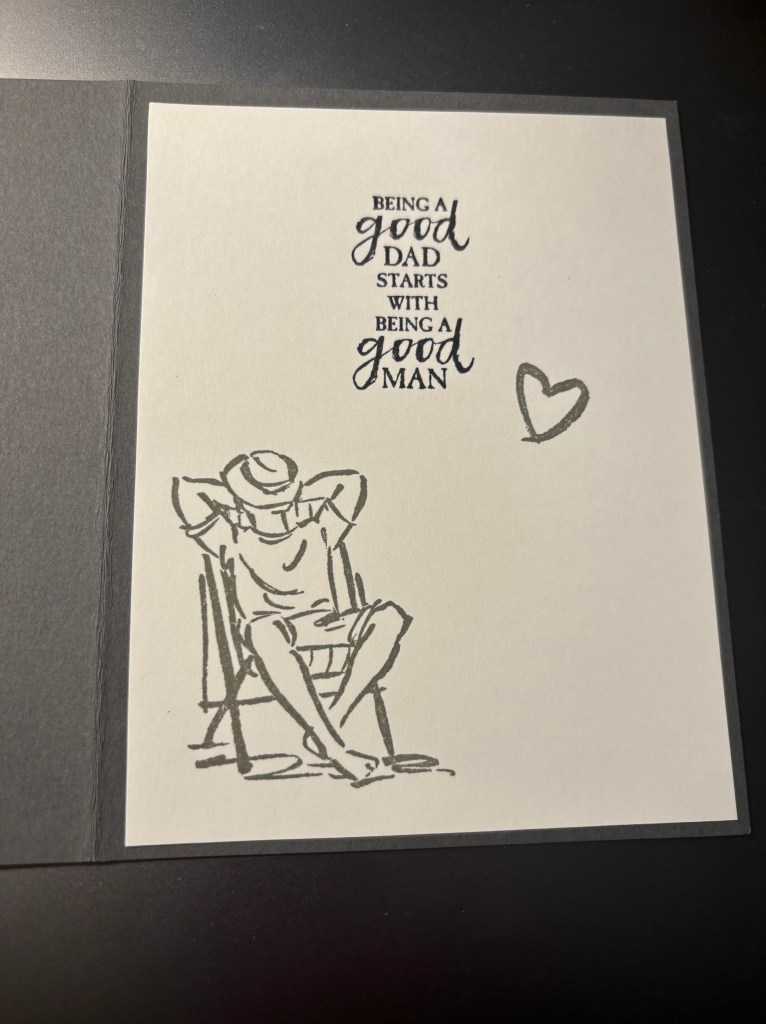 BEING A
good
DAD
STARTS
WITH
BEING A
good
MAN